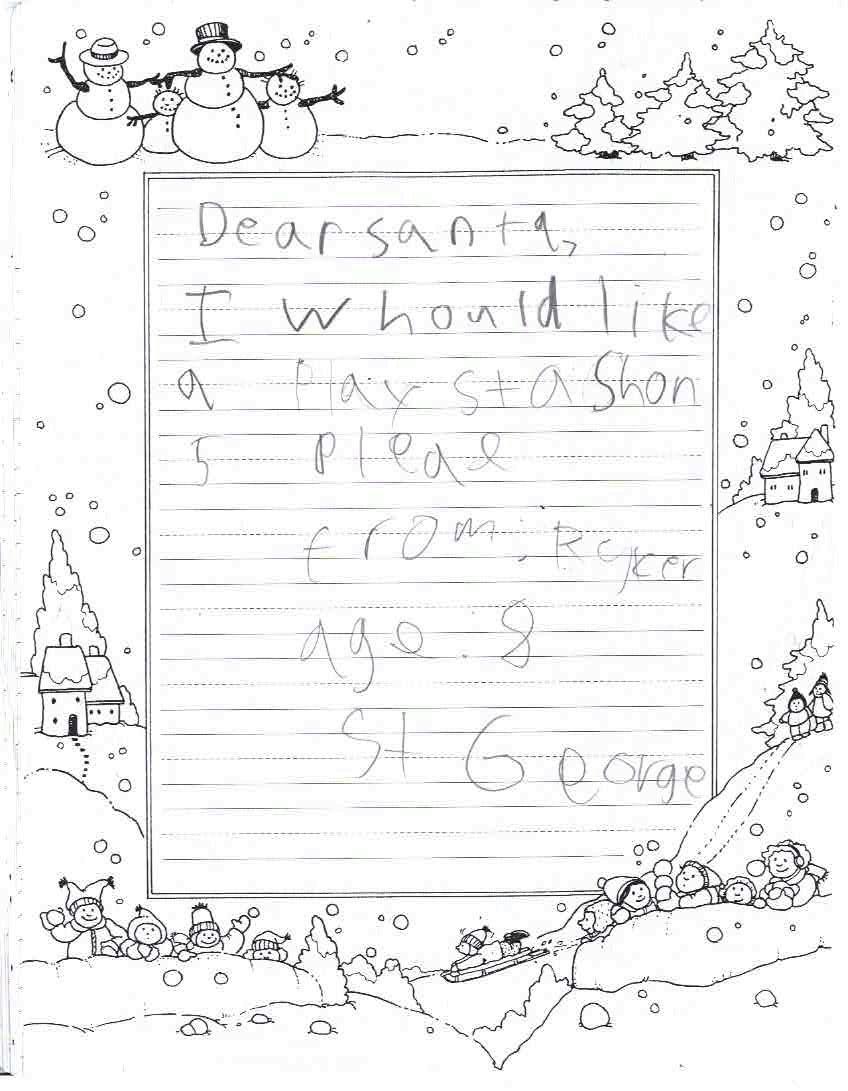 Dear santa,
I whould like
a Play staShon
5 pleae
from: Ryker
age: 8
St George